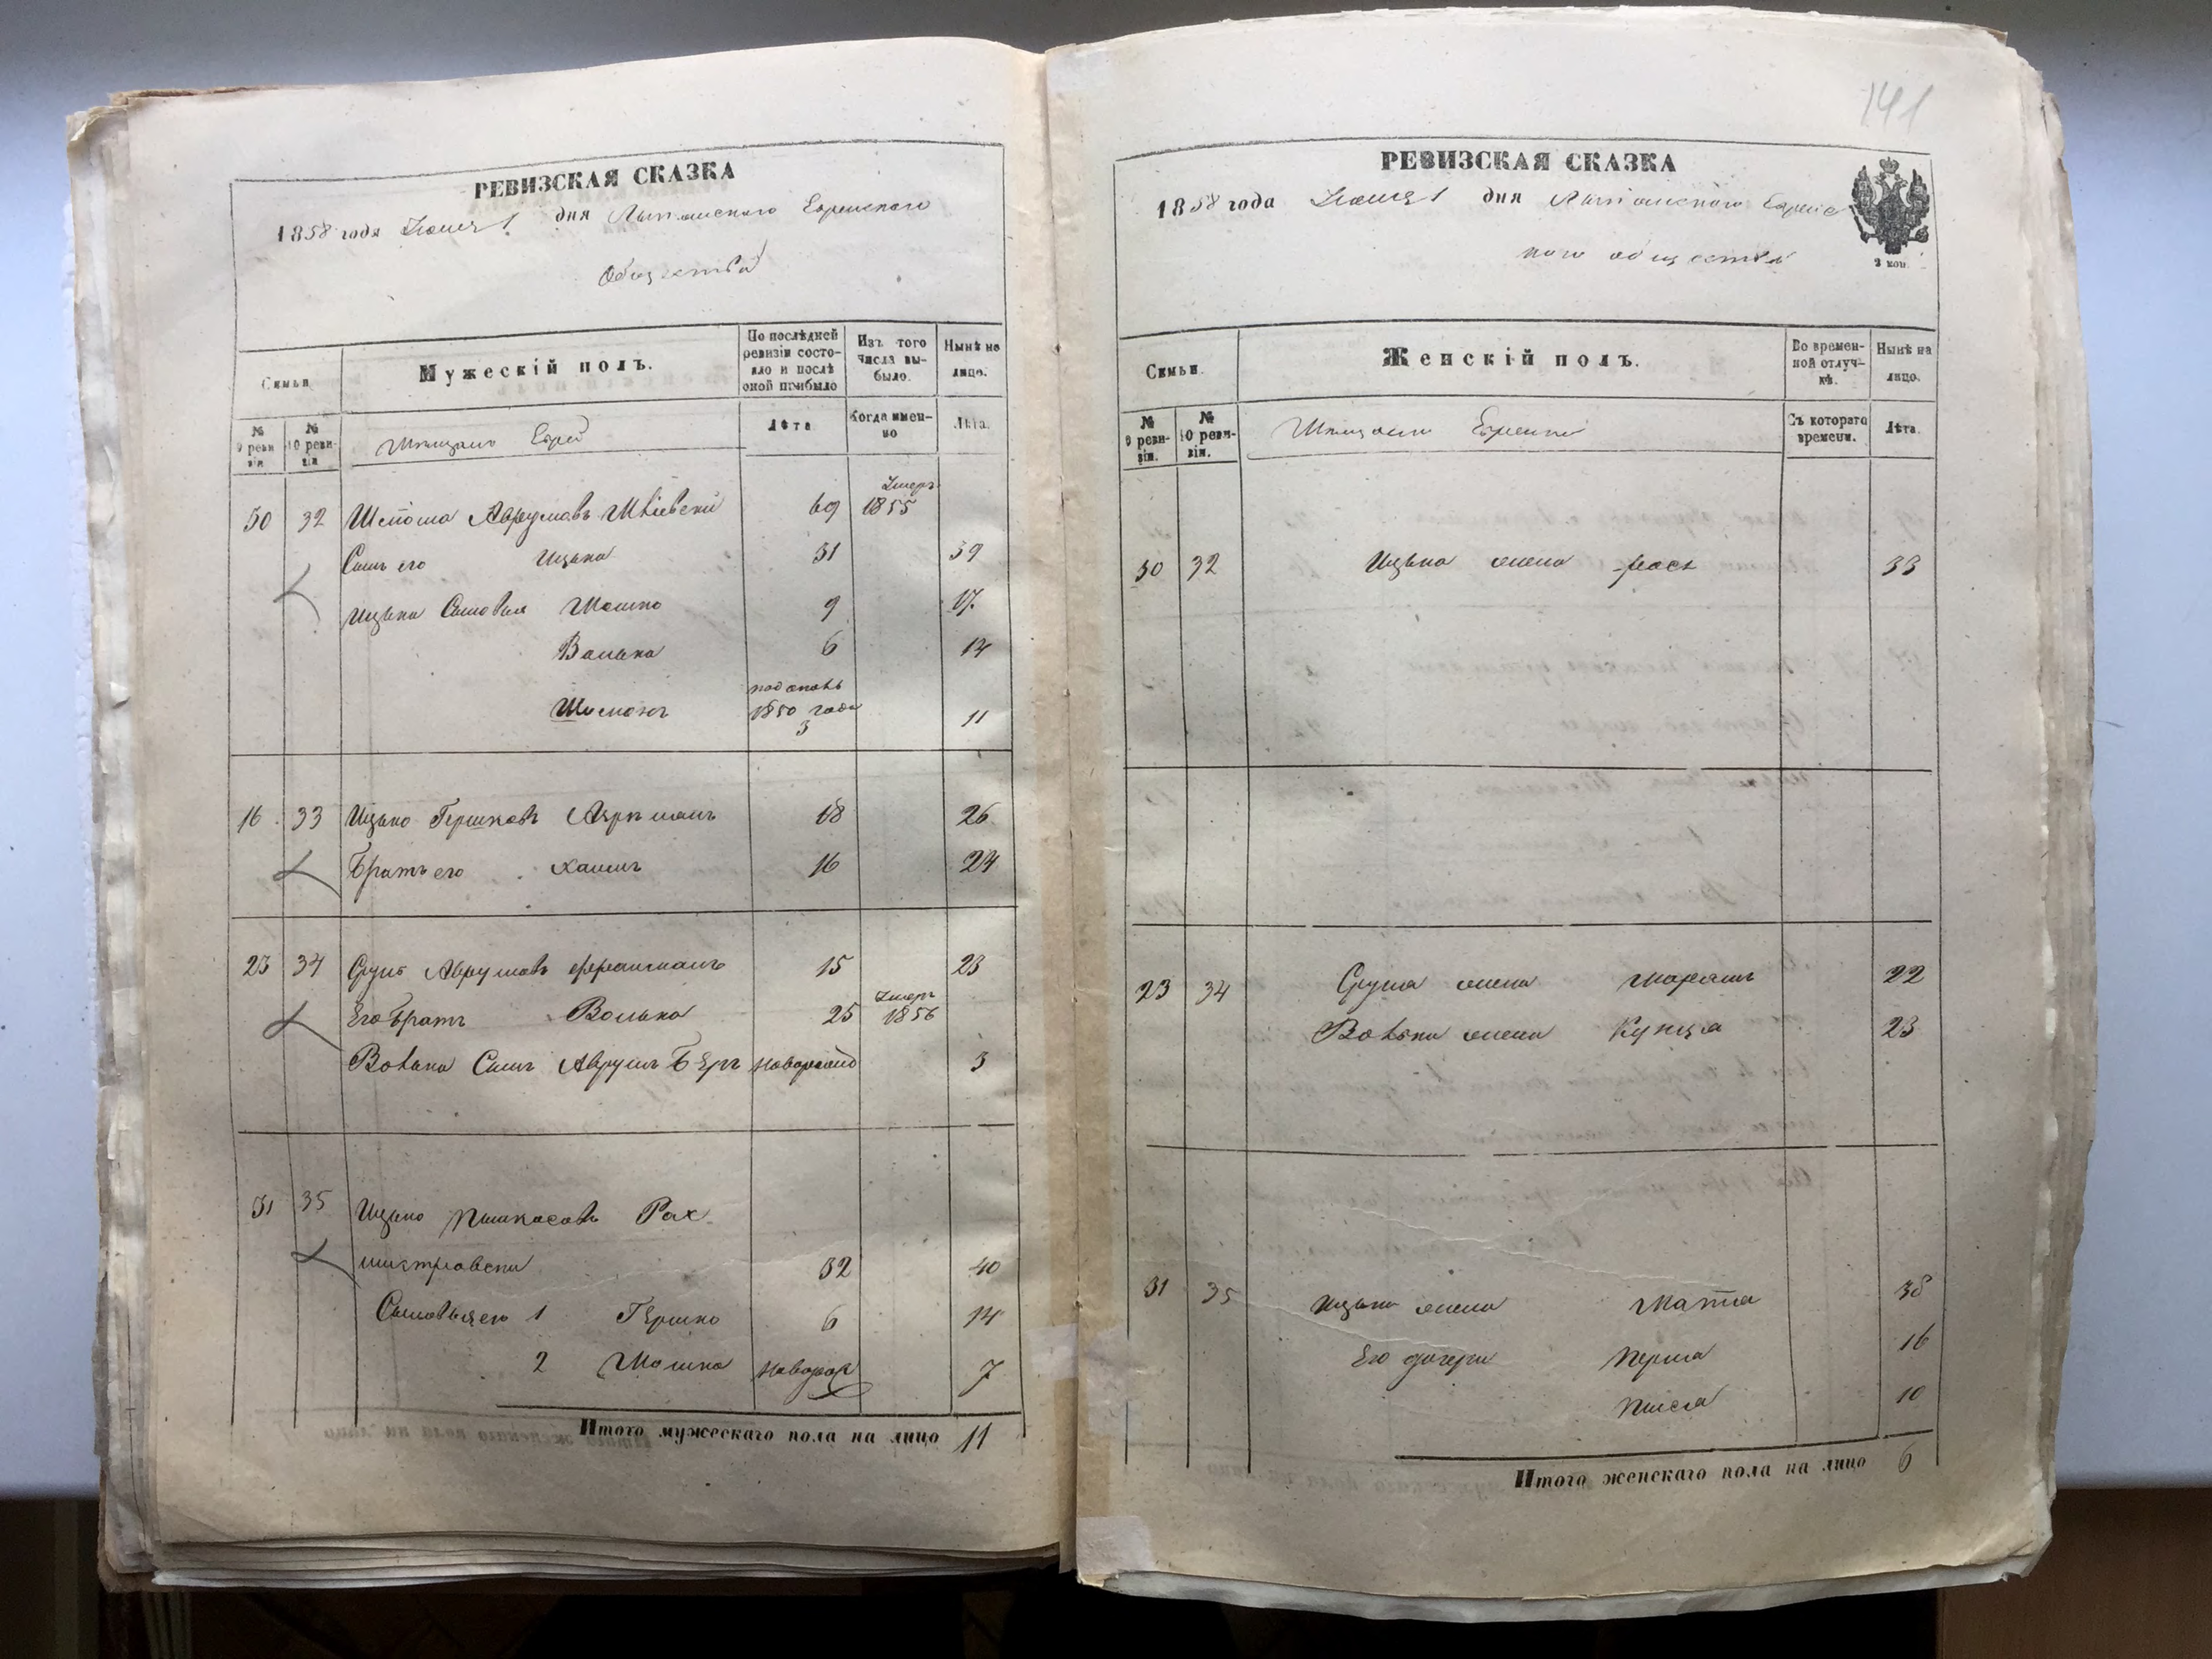 РЕВИЗСКАЯ СКАЗКА
1858 года Июня 1 дня Еврейского
Общества
Семьи
Мужескій полъ.
По послѣдней ревизіи состояло и послѣ оной прибыло
Изъ того числа выбыло.
Нынѣ на лицо.
№ 9 ревизіи
№ 10 ревизіи
Мещане Евреи
Лѣта
Когда именно
Лѣта.
Умеръ
50 32 Аврумовъ 69 1855
Сынъ его Ицько 31 39
Ицька Сыновья Мошко 9 17.
Волько 6 14
1850 года
3 11
16 33 Ицько Гершковъ 18 26
Братъ его Хаимъ 16 24
23 34 Сруль Аврумовъ 15 23
Умеръ
Его братъ Волько 25 1856
Волька Сынъ Аврумъ Беръ новорожд 3
31 35 Ицько Пинкасовъ Рах
мистровски 32 40
Сыновья его 1 Гершко 6 14
2 Мошко новорож 7
Итого мужескаго пола на лицо 11
141
РЕВИЗСКАЯ СКАЗКА
1858 года Июня 1 дня Еврейс
каго общества
3 коп.
Семьи.
Женскій полъ.
Во временной отлучкѣ.
Нынѣ на лицо.
№ 9 ревизіи.
№ 10 ревизіи.
Мещане Еврейки
Съ котораго времени.
Лѣта.
30 32 Ицька жена 33
23 34 Сруля жена Марьямъ 22
Волька жена 23
31 35 Ицька жена 38
Его дочери Перля 16
10
Итого женскаго пола на лицо 6